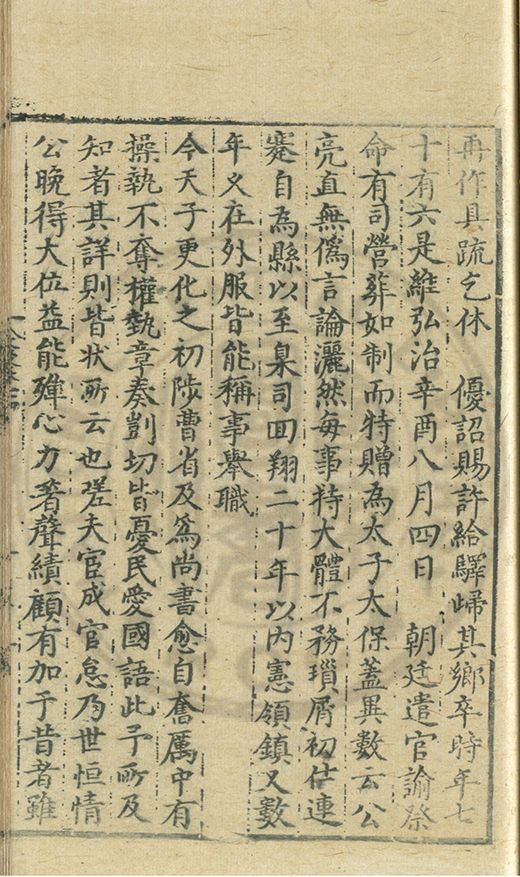 再作具疏乞休　優詔賜許給驛歸其鄉卒時年七
十有六是維弘治辛酉八月四日　朝廷遣官諭祭
命有司營葬如制而特贈為太子太保蓋異數云公
亮直無僞言論灑然每事持大體不務瑣屑初仕連
蹇自為縣以至臬司回翔二十年以內憲領鎮又數
年乂在外服皆能稱事舉職
今天子更化之初陟曹省及爲尚書愈自奮厲中有
操執不奪權埶章奏剴切皆憂民愛國語此予所及
知者其詳則皆狀所云也嗟夫宦成官怠乃世恒情
公晚得大位益能殫心力著聲績顧有加于昔者雖